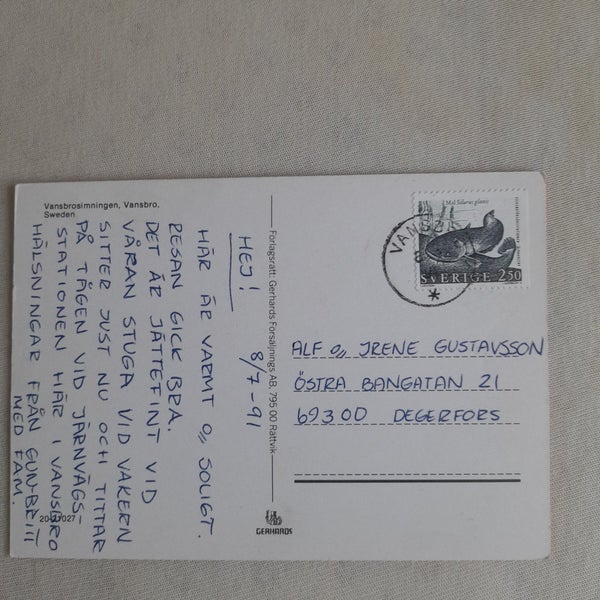 Vansbrosimningen, Vansbro.
Sweden
8/7-91
HEJ!
HÄR ÄR VARMT O, SOLIGT.
RESAN GICK BRA.
DET ÄR JÄTTEFINT VID
VÅRAN STUGA VID VAKERN
SITTER JUST NU OCH TITTAR
PÅ TÅGEN VID JÄRNVÄGS-
STATIONEN HÄR I VANSBRO
HÄLSNINGAR FRÅN GUN-BRITT
MED FAM.
20-21027
Förlagsrätt: Gerhards Försäljnings AB, 795 00 Rättvik
GERHARDS
Mal Silurus glanis
SVERIGE 2.50
ALF O, IRENE GUSTAVSSON
ÖSTRA BANGATAN 21
693 00 DEGERFORS